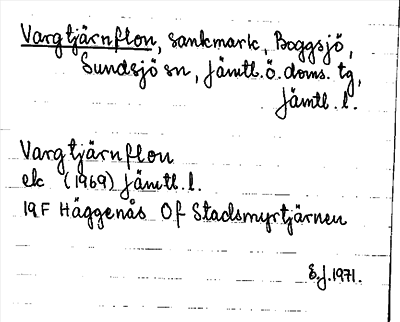 Vargtjärnflon, sankmark, Boggsjö,
Sundsjö sn, Jämtl.ö.doms. tg,
Jämtl. l.
Vargtjärnflon
ek (1969) Jämtl. l.
19F Häggenås Of Stadsmyrtjärnen
S.J. 1971.